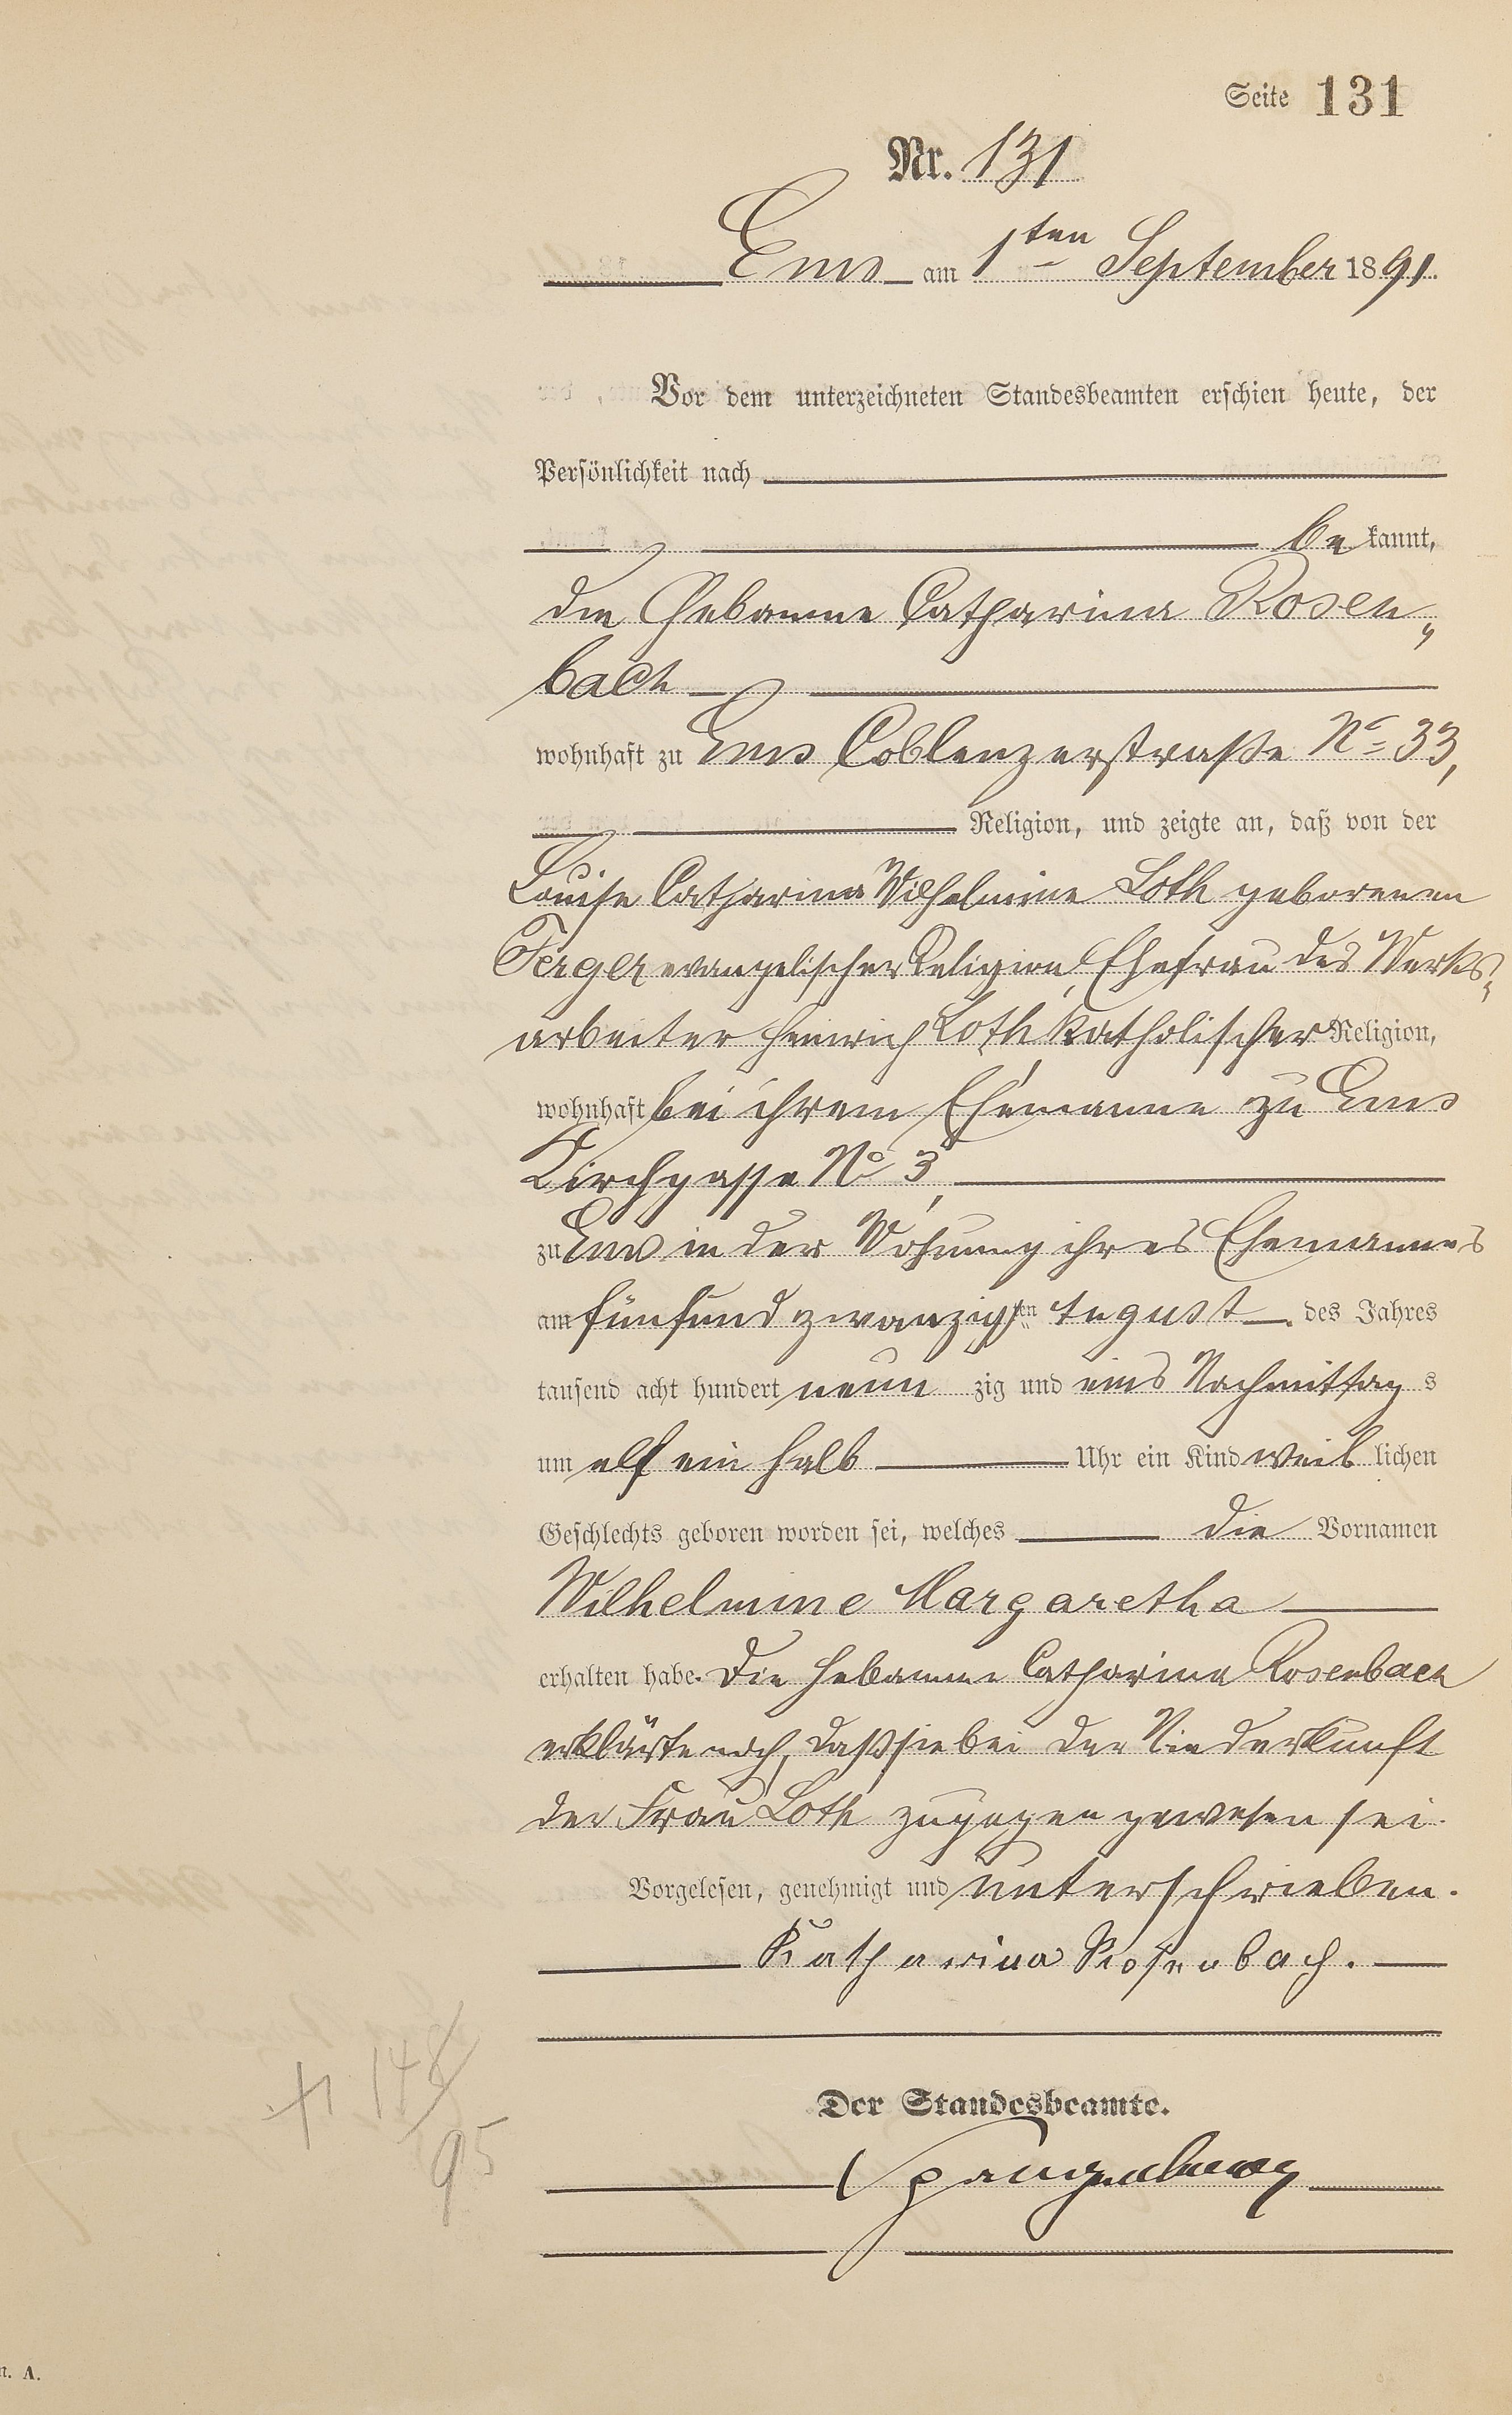 Seite 131
Nr. 131
Ems am 1ten September 1891.
Vor dem unterzeichneten Standesbeamten erschien heute, der
Persönlichkeit nach
bekannt,
die Hebamme Catharina Rosen„
bach
wohnhaft zu Ems Coblenzerstraße No 33,
Religion, und zeigte an, daß von der
Louise Catharina Wilhelmine Loth geborenen
Ferger evangelischer Religion, Ehefrau des Werks„
arbeiter Heinrich Loth, katholischer Religion,
wohnhaft bei ihrem Ehemanne zu Ems
Kirchgasse No 3,
zu Ems in der Wohnung ihres Ehemannes
am fünfundzwanzigsten August des Jahres
tausend acht hundert neunzig und eins Nachmittags
um elf ein halb Uhr ein Kind weiblichen
Geschlechts geboren worden sei, welches die Vornamen
Wilhelmine Margaretha
erhalten habe. Die Hebamme Catharina Rosenbach
erklärte noch, daß sie bei der Niederkunft
der Frau Loth zugegen gewesen sei.
Vorgelesen, genehmigt und unterschrieben.
Katharina Rosenbach.
Der Standesbeamte.
Spangenberg
148/95
n. A.